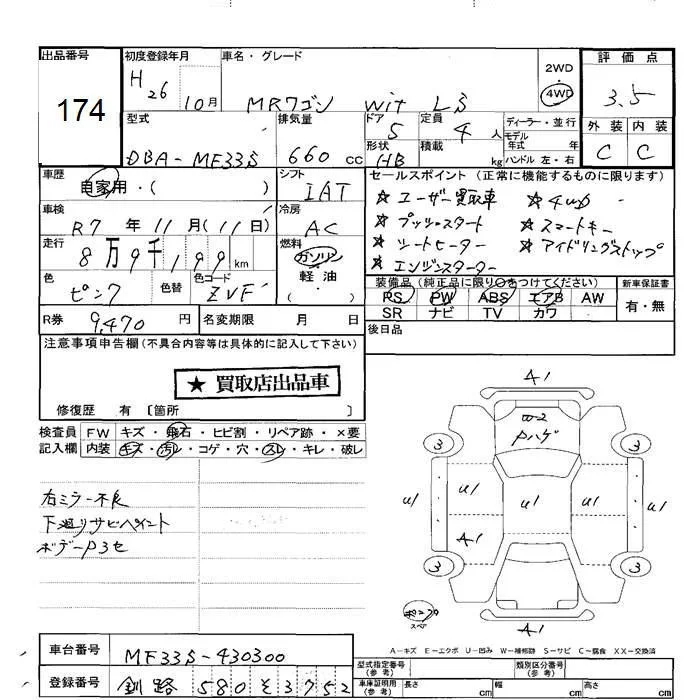 出品番号
174
初度登録年月
H 26 10月
車名・グレード
MRワゴン wit LS
2WD
4WD
評価点
3.5
外装 内装
C C
型式
DBA-MF33S
排気量
660 cc
ドア
5
定員
4人
形状
HB
積載
kg
ディーラー・並行
モデル年式 年
ハンドル 左・右
車歴
自家用・( )
シフト
IAT
車検
R7年11月(11日)
冷房
AC
走行
8万9千199km
燃料
ガソリン
軽油
( )
色
ピンク
色替
色コード
ZVF
R券
9,470円
名変期限 月 日
セールスポイント (正常に機能するものに限ります)
☆ユーザー買取車 ☆4WD
☆プッシュスタート ☆スマートキー
☆シートヒーター ☆アイドリングストップ
☆エンジンスターター
装備品(純正品に限り○をつけてください)
RS PW ABS エアB AW
SR ナビ TV カワ
新車保証書
有・無
後日品
注意事項申告欄(不具合内容等は具体的に記入して下さい)
★ 買取店出品車
修復歴 有 〔箇所 〕
検査員記入欄
FW キズ・飛石・ヒビ割・リペア跡・×要
内装 キズ・汚レ・コゲ・穴・スレ・キレ・破レ
右ミラー不良
下廻りサビペイント
ボデーP3セ
A1
W-2
Pハゲ
3 3
U1 U1 U1 U1 U1
A1
3 3
スペア
A1
A-キズ E-エクボ U-凹み W-補修跡 S-サビ C-腐食 XX-交換済
車台番号
MF33S-430300
登録番号
釧路 580 そ 3752
型式指定番号(参考)
類別区分番号(参考)
車庫証明用(参考)
長さ cm 幅 cm 高さ cm